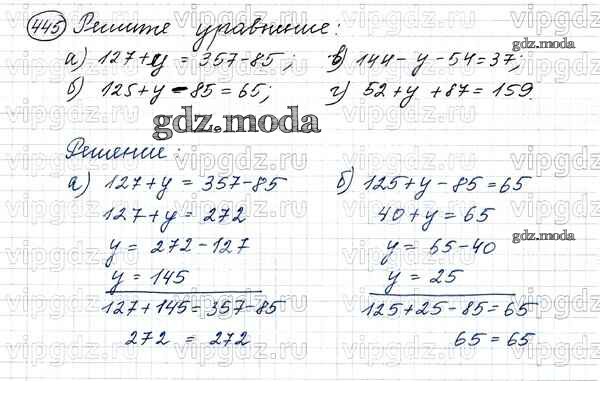 445 Решите уравнение:
а) 127+y = 357-85; в) 144-y-54=37;
б) 125+y-85=65; г) 52+y+87=159.
gdz.moda
gdz.moda
Решение:
а) 127+y = 357-85
127+y = 272
y = 272-127
y = 145
127+145=357-85
272 = 272
б) 125+y-85=65
40+y=65
gdz.moda
y = 65-40
y = 25
125+25-85=65
65=65
vipgdz.ru